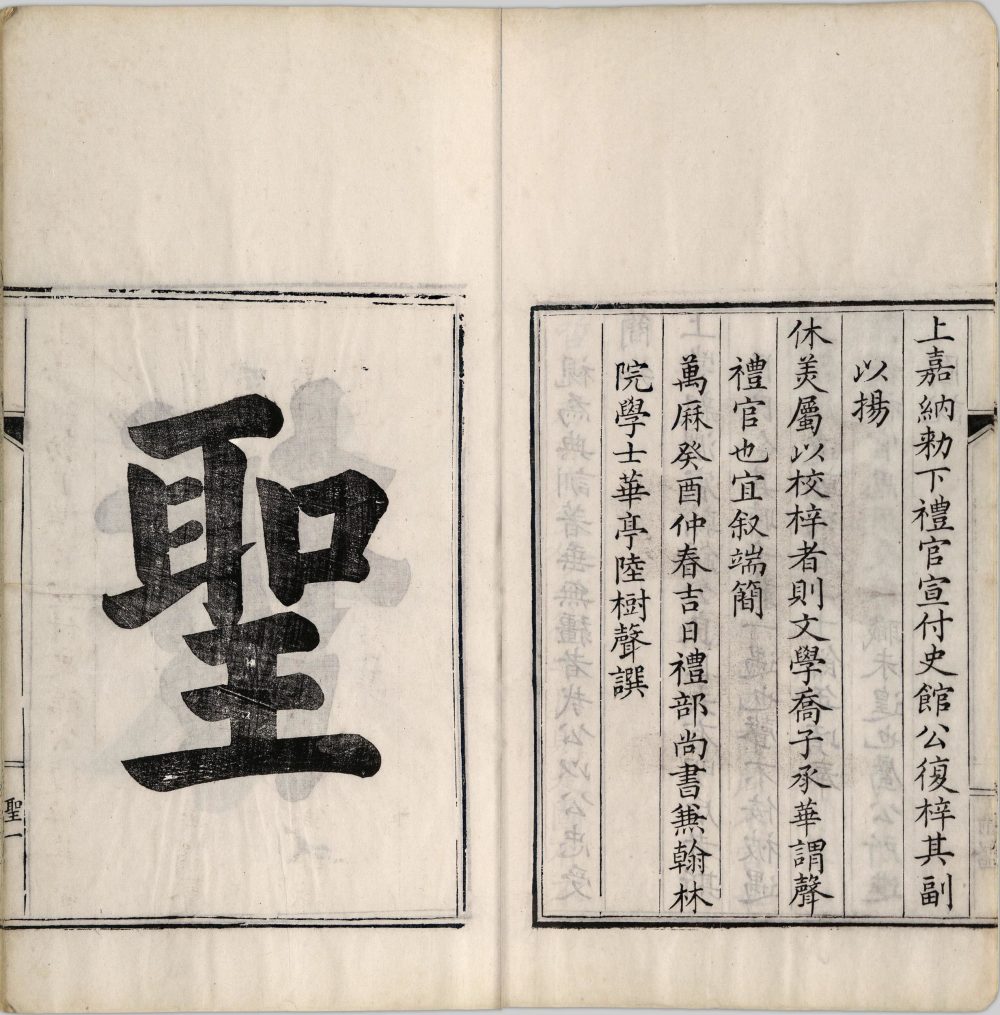 上嘉納勑下禮官宣付史館公復梓其副
以揚
休美屬以校梓者則文學喬子承華謂聲
禮官也宜叙端簡
萬厤癸酉仲春吉日禮部尚書兼翰林
院學士華亭陸樹聲譔
聖
聖一